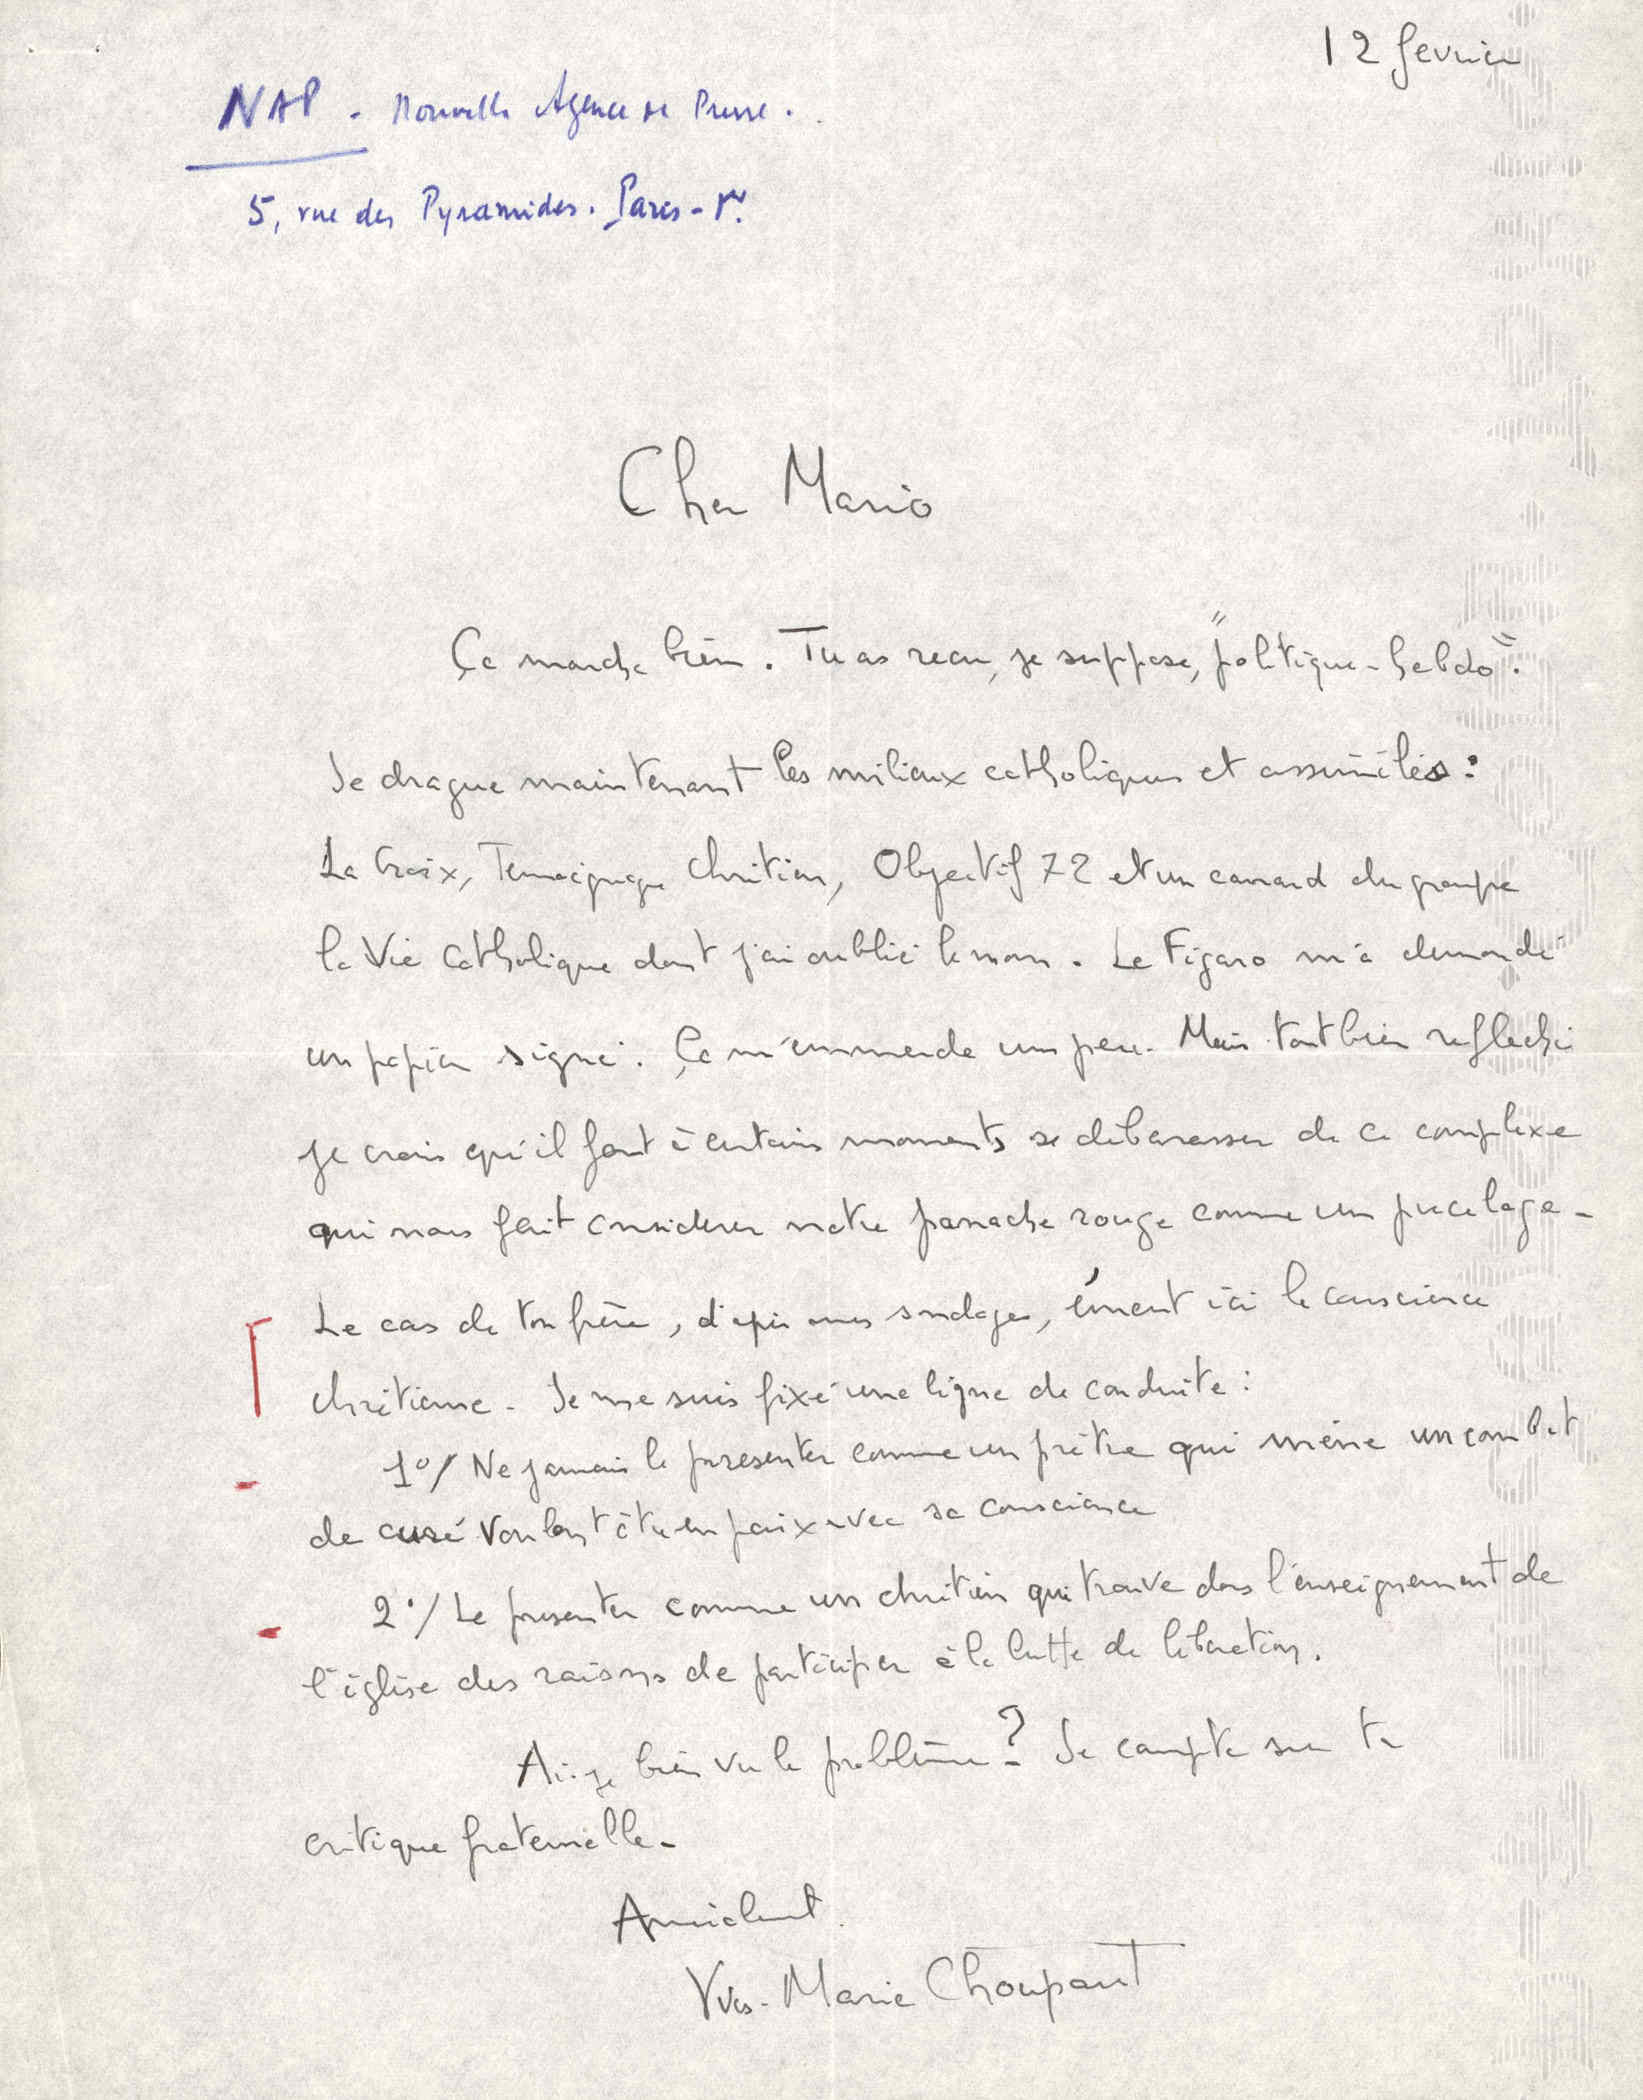 12 fevrier
NAP - Nouvelle Agence de Presse.
5, rue des Pyramides. Paris - 1er.
Cher Mario
Ça marche bien. Tu as reçu, je suppose, "politique-hebdo".
Je drague maintenant les milieux catholiques et assimilés :
La Croix, Temoignage Chrétien, Objectif 72 et un canard du groupe
la Vie Catholique dont j'ai oublié le nom. Le Figaro m'a demandé
un papier signé. Ça m'emmerde un peu. Mais tout bien reflechi
je crois qu'il faut à certains moments se débarasser de ce complexe
qui nous fait considerer notre panache rouge comme un pucelage -
Le cas de ton frère, d'après mes sondages, émeut ici la conscience
chrétienne - Je me suis fixé une ligne de conduite :
1°/ Ne jamais le presenter comme un prêtre qui mène un combat
de curé voulant être en paix avec sa conscience
2°/ Le presenter comme un chrétien qui trouve dans l'enseignement de
l'église des raisons de participer à la lutte de libération.
Ai-je bien vu le problème ? Je compte sur ta
critique fraternelle -
Amicalement.
Yves-Marie Choupaut